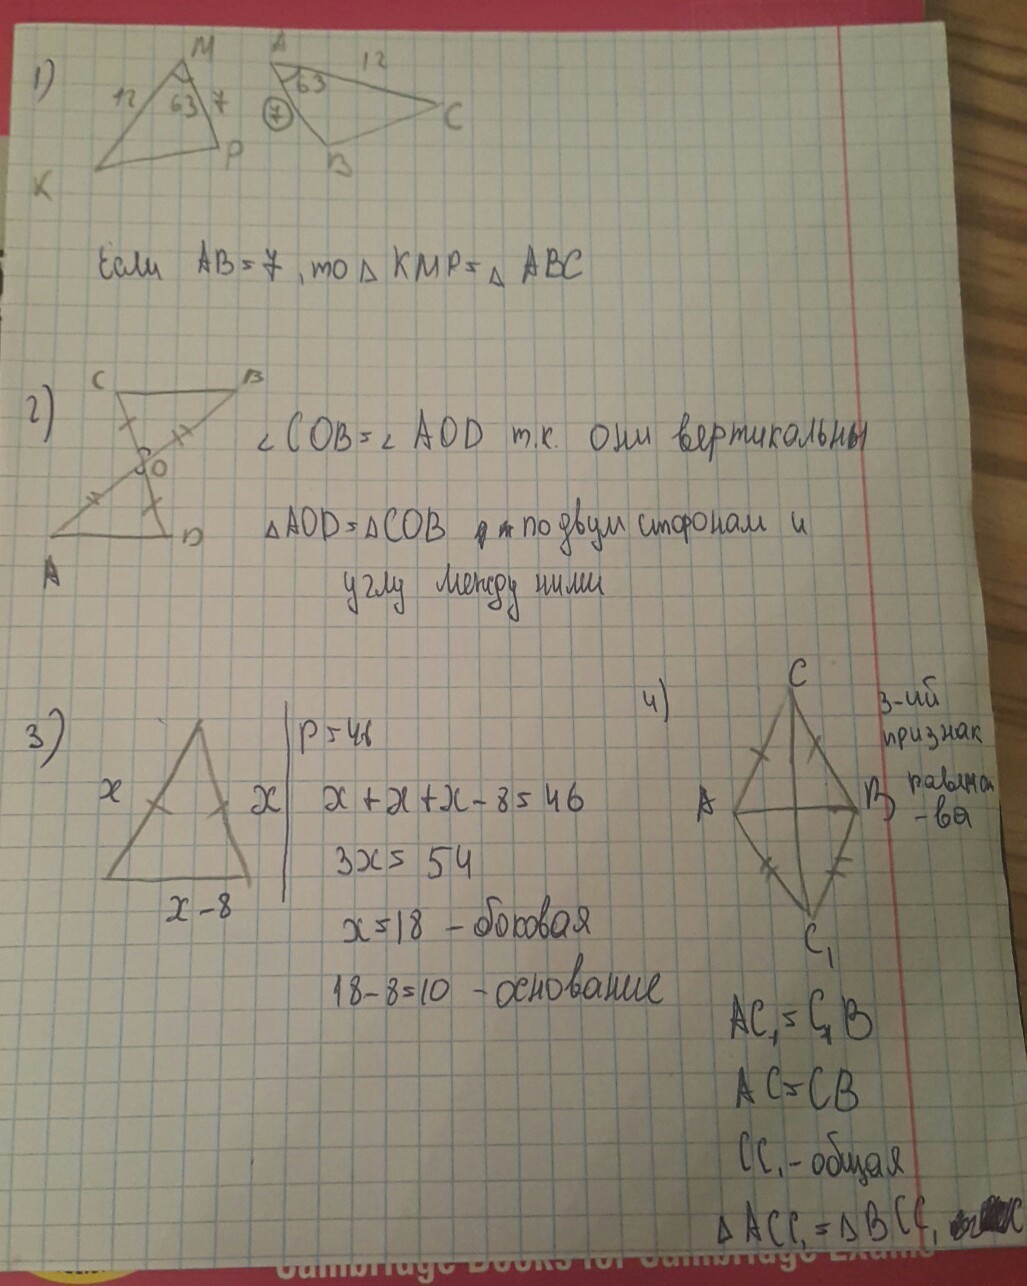 1)
M
12
63
7
K
P
A
12
63
7
C
B
Если AB=7, то △ KMP=△ ABC
2)
C
B
O
A
D
∠COB=∠AOD т.к. они вертикальны
△AOD=△COB по двум сторонам и
углу между ними
3)
x
x
x-8
P=46
x+x+x-8=46
3x=54
x=18 - боковая
18-8=10 - основание
4)
C
A
B
C₁
3-ий
признак
равенст
-ва
AC₁=C₁B
AC=CB
CC₁-общая
△ACC₁=△BCC₁
Cambridge Books for Cambridge Exams